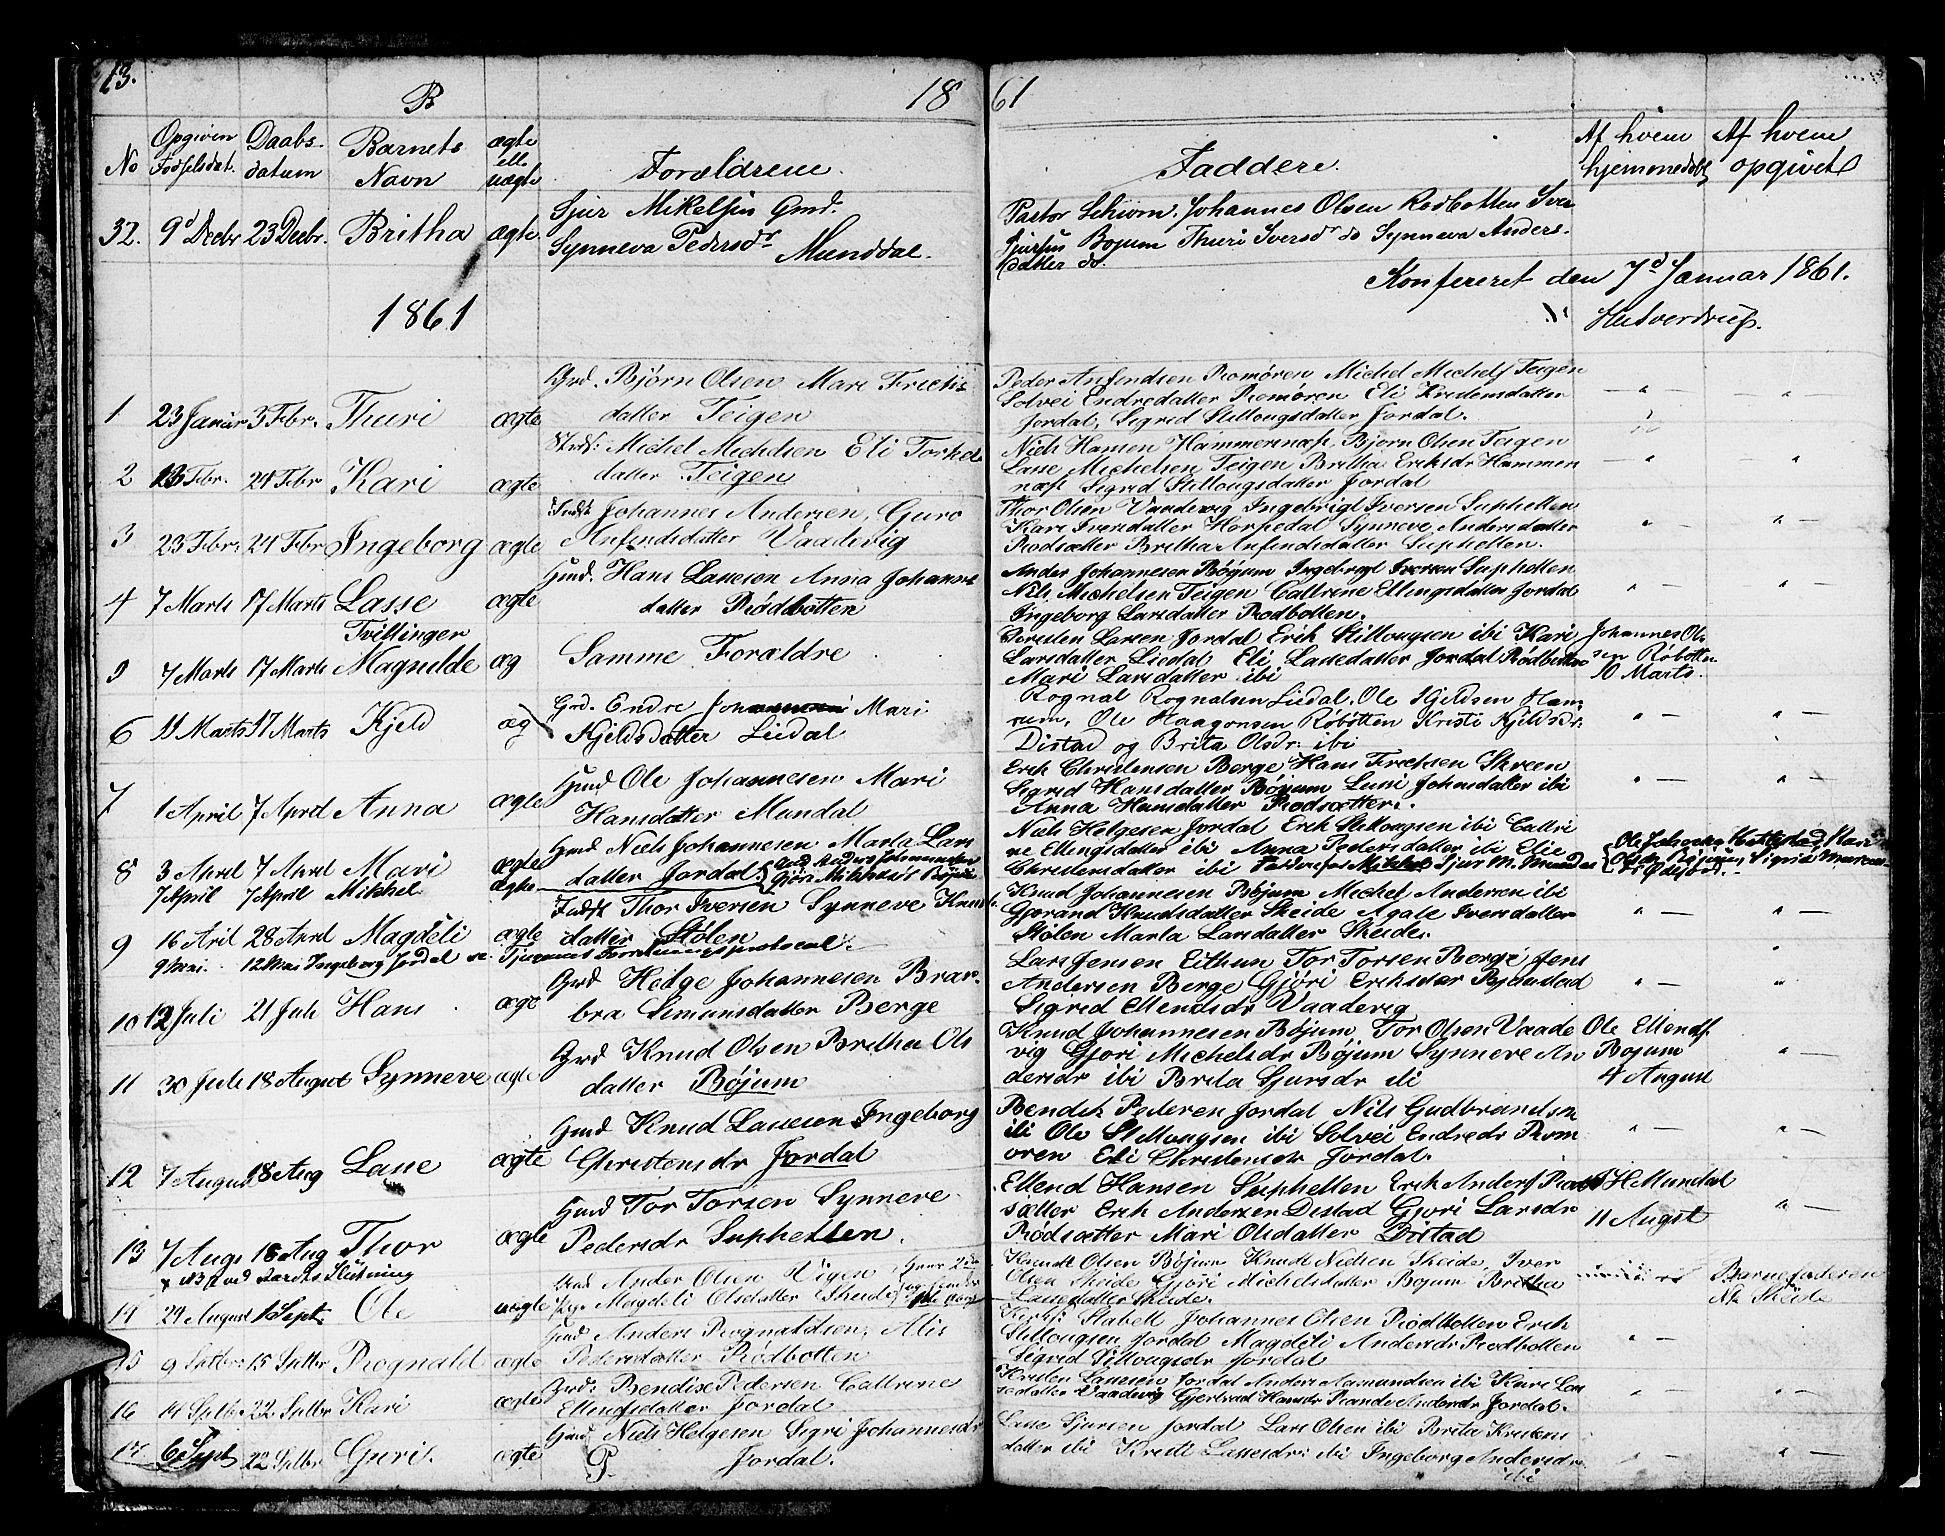 13.
B
18 61
No Opgiven Fødselsdat. Daabs-datum Barnets Navn ægte ell. uægte Forældrene. Faddere. Af hvem hjemmedøbt Af hvem opgivet
32. 9d Decbr 23 Decbr. Britha ægte. Sjur Mikelsen Gmd.
Synneva Pedersdr Munddal.
Pastor Schiørn. Johannes Olsen Rødbotten Iver
Sjursen Bøjum Thuri Iversdr do Synneva Anders-
datter do.
Konfereret den 7d Januar 1861.
1861
1 23 Januar 3 Febr. Thuri ægte
Gmd. Bjørn Olsen Mari Frichs
datter Teigen
Peder Anfindsen Romøren Michel Michels Teigen
Solvei Endredatter Romøren Eli Kristensdatter
Jordal, Sigrid Stillougsdatter Jordal.
2 13 Febr. 24 Febr Kari ægte
Michel Michelsen Eli Torkel
datter Teigen
Niels Hansen Hammersnæs, Bjørn Olsen Teigen
Lasse Michelsen Teigen Britha Eriksdr Hammers
næs Sigrid Stillougsdatter Jordal
3 23 Febr. 24 Febr Ingeborg ægte
Indst Johannes Andersen, Guro
Anfindsdatter Vaadevig
Thor Olsen Vaadevig Ingebrigt Iversen Suphellen
Kari Iversdatter Horpedal Synneve Andersdatter
Rødsætter Britha Anfindsdatter Suphellen.
4 7 Marts 17 Marts Lasse ægte
Tvillinger
Gmd. Hans Lassesen Anna Johannes
datter Rødbotten
Anders Johannesen Bøyum Ingebrigt Iversen Suphellen
Nils Michelsen Teigen Cathrine Ellingsdatter Jordal
Ingeborg Larsdatter Rødbotten.
5 7 Marts 17 Marts Magnilde æg
Samme Forældre
Torsten Larsen Jordal Erik Stillougsen ibi Kari
Larsdatter Liedal Eli Lassedatter Jordal Rødbotten
Mari Larsdatter ibi
Johannes Ol-
sen Røbotten
10 Marts.
6 11 Marts 17 Marts Kjeld æg
Grd. Endre Mari
Kjeldsdatter Liedal
Rognal Rognalsen Liedal, Ole Kjeldsen Ham
rum, Ole Haagonsen Røbotten Kristi Kjeldsdr:
Distad og Brita Olsdr: ibi
7 1 April 7 April Anna ægte
Gmd Ole Johannesen Mari
Hansdatter Mundal
Erik Christensen Berge Hans Frichsen Skreen
Sigrid Hansdatter Bøjum Lussi Johnsdatter ibi
Anna Hansdatter Rødsætter.
8 3 April 7 April Mari ægte
7 April 7 April Mikkel ægte
Gmd Niels Johannesen Marta Lars
datter Jordal.
Niels Helgesen Jordal Erik Stillougsen ibi Cathri
ne Ellingsdatter ibi Anna Pedersdatter ibi Elie
Christensdatter ibi
9 16 April 28 April Magdeli ægte
Indst Thor Iversen Synneve Knuds
datter Stølen
Knud Johannesen Bøjum Michel Andersen ibi
Gjørand Knudsdatter Skeide Agate Iversdatter
Stølen Marta Larsdatter Skeide.
9 Mai. 12 Mai Ingeborg Jordal se
10 12 Juli 21 Juli Hans ægte
Gmd Helge Johannesen Brar-
bra Simunsdatter Berge
Lars Jensen Eithun Tor Torsen Berge Jens
Andersen Berge Gjøri Eriksdatr Bjelstad
Sigrid Ellendsdr Vaadevig
11 30 Juli 18 August Synneve ægte
Gmd Knud Olsen Britha Ols
datter Bøjum
Knud Johannesen Bøjum Tor Olsen Vaade
vig Gjøri Michelsdr Bøjum Synneve An
dersdr ibi Brita Sjursdr ibi
Ole Ellends.
Bøjum
4 August
12 7 August 18 Aug Lasse ægte
Gmd Knud Lassesen Ingeborg
Christensdr Jordal
Bendik Pedersen Jordal Nils Gudbrandsen
ibi Ole Stillougsen ibi Solvei Endredr Rom
øren Eli Christensdr Jordal.
13 7 Augs 18 Aug Thor ægte
Gmd Tor Torsen Synneve
Pedersdr Suphellen.
Ellend Hansen Suphellen Erik Anders Rød
sætter Erik Andersen Distad Gjøri Larsdr
Rødsætter Mari Olsdatter Distad
H Mundal
11 Augst
x N3 ved Aarets Slutning
14 24 August 1 Sept. Ole uægte
Anders Olsen Vigen
Magdeli Olsdatter Skeide
Knudt Olsen Bøjum Knudt Nielsen Skeide, Iver
Olsen Skeide Gjøri Michelsdatter Bøjum Britha
Lassedatter Skeide.
Barnefaderen
15 9 Sptbr: 15 Sptbr Rognald ægte
Gmd Anders Rognaldsen, Alis
Pedersdatter Rødbotten
Stabell Johannes Olsen Rødbotten Erik
Stillougsen Jordal Magdeli Andersdr Rødbotten
Sigrid Stillougsdr Jordal
16 14 Sptbr 22 Sptbr Kari ægte
Gmd: Bendixe Pedersen Cathrine
Ellingsdatter Jordal
Kristen Lassesen Jordal Anders Aamundsen ibi Kari Las
sedatter Vaadevig Gjertrud Hansdr Randi Andersdr Jordal.
17 6 Sept 22 Sptbr Guri. ægte
Gmd Niels Helgesen Sigri Johannesdr
Jordal.
Lasse Sjursen Jordal Lars Olsen ibi Brita Kristens
datter ibi Kristi Lassesdr: ibi Ingeborg Andersdr
ibi